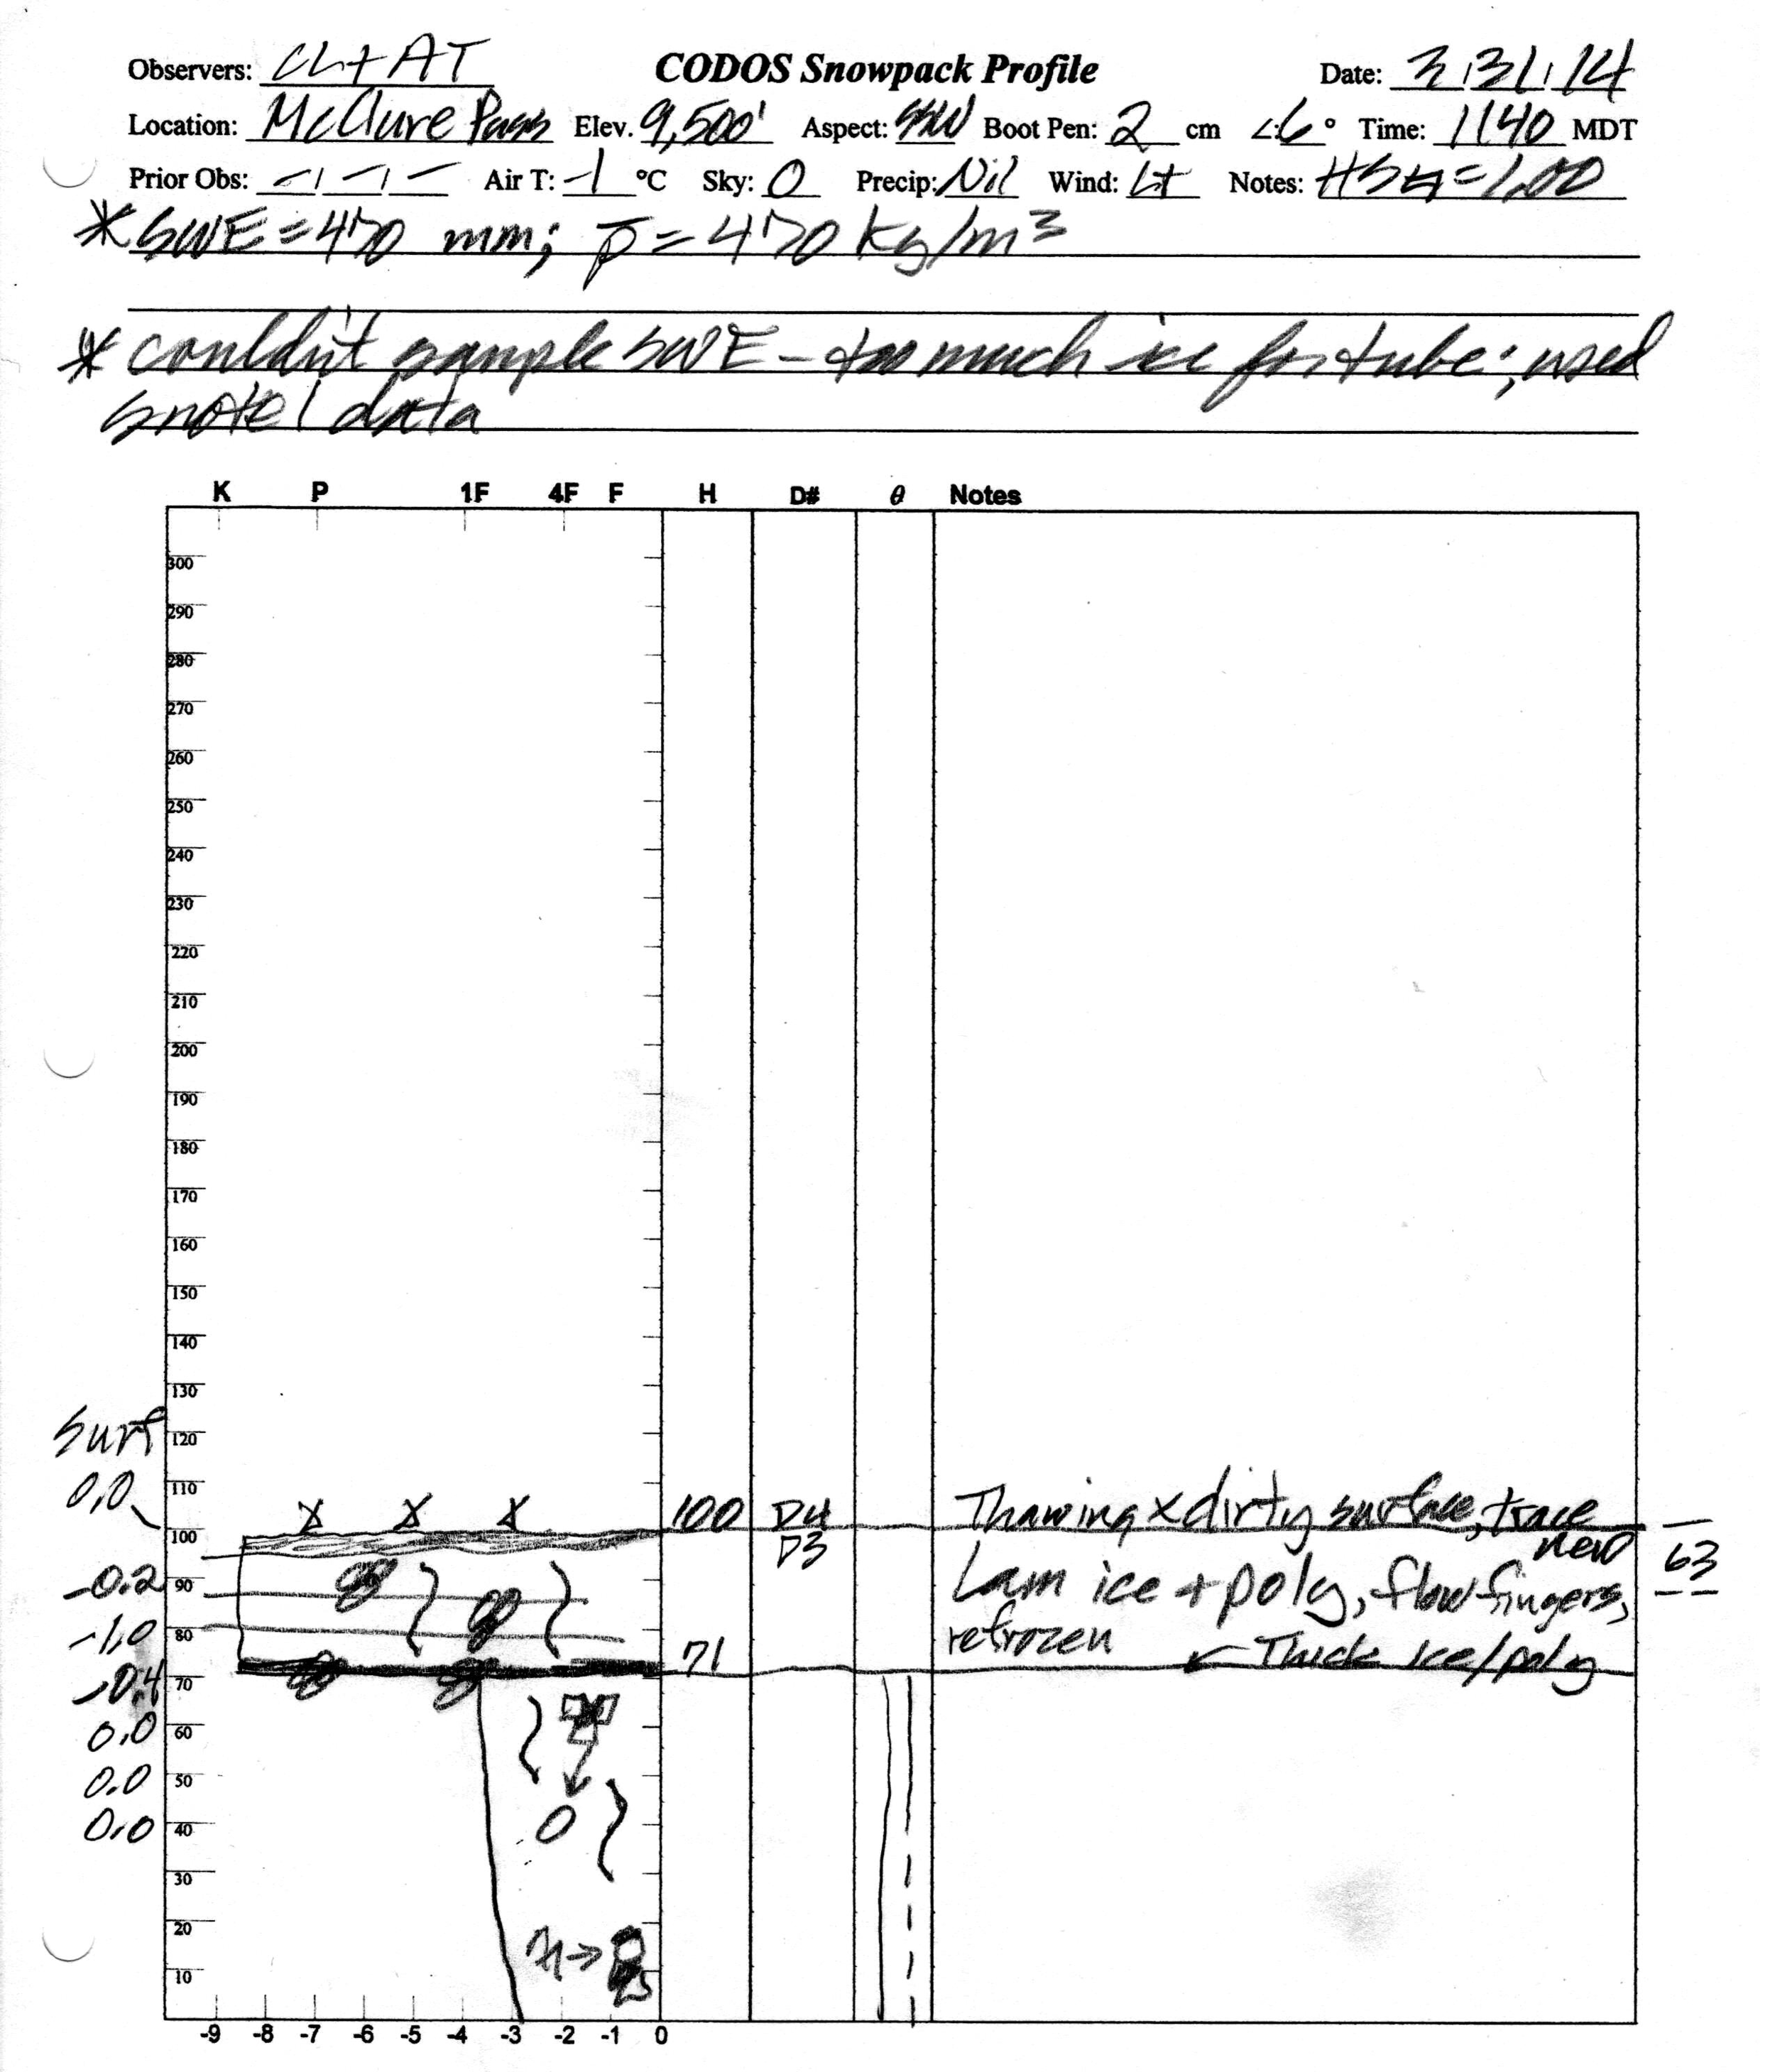 Observers: CL+AT CODOS Snowpack Profile Date: 3/31/14
Location: McClure Pass Elev. 9,500' Aspect: SSW Boot Pen: 2 cm ∠:6° Time: 1140 MDT
Prior Obs: -/-/- Air T: -1 °C Sky: O Precip: Nil Wind: Lt Notes: = 1.00
* SWE = 470 mm; ρ̅ = 470 kg/m3
* couldn't sample SWE - too much ice for tube; used
snotel data
K P 1F 4F F H D# θ Notes
300
290
280
270
260
250
240
230
220
210
200
190
180
170
160
150
140
130
Surf 120
0.0 110
100 100 D4 Thawing x dirty surface, trace
D3 new 63
-0.2 90 Lam ice + poly, flow fingers,
-1.0 80 71 refrozen ← Thick ice/poly
-0.4 70
0.0 60
0.0 50
0.0 40
30
20
10
-9 -8 -7 -6 -5 -4 -3 -2 -1 0